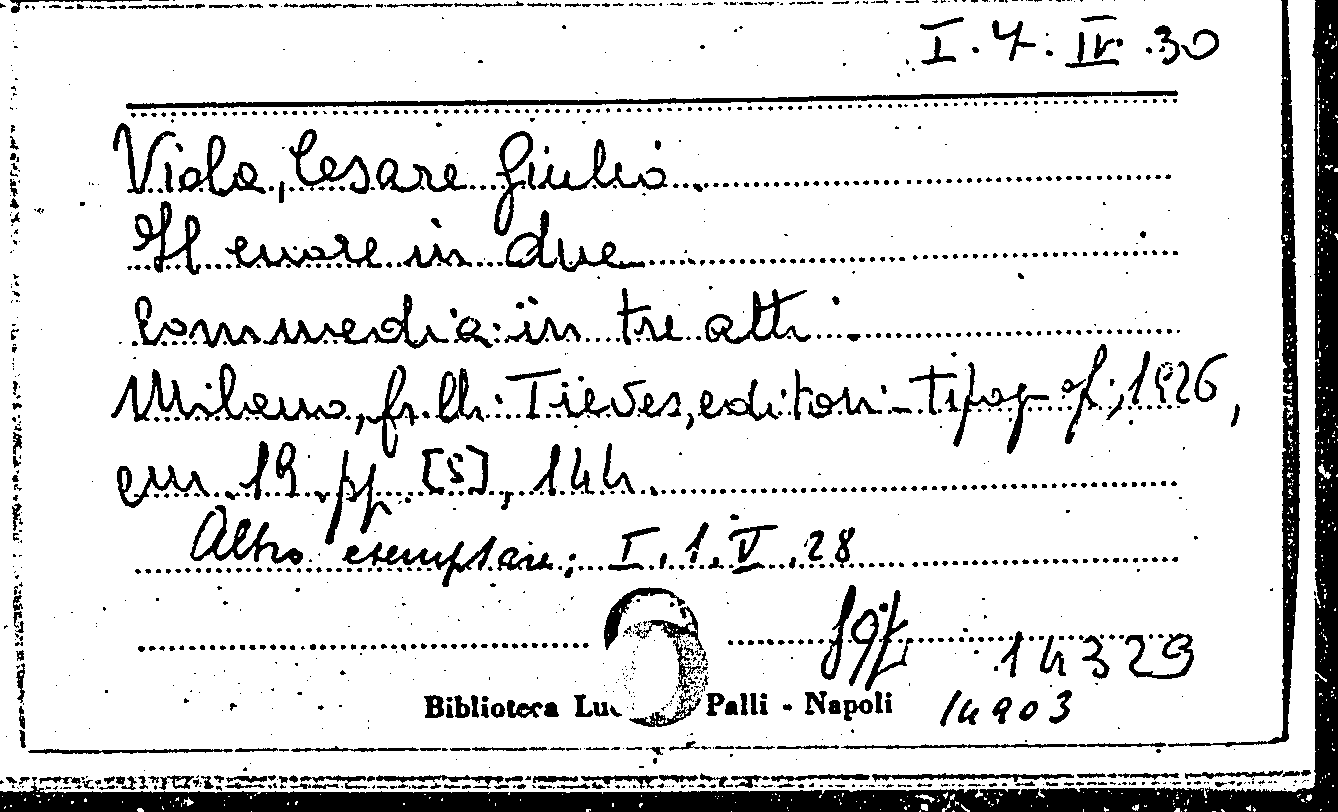 I. 4. IV. 30
Viola, Cesare Giulio.
Il cuore in due
Commedia in tre atti.
Milano, f.lli Treves, editori-tipog-, 1926,
cm. 19. pp. [5], 144.
Altro esemplare: I. 1. V. 28
14329
Biblioteca Lu Palli - Napoli 14903